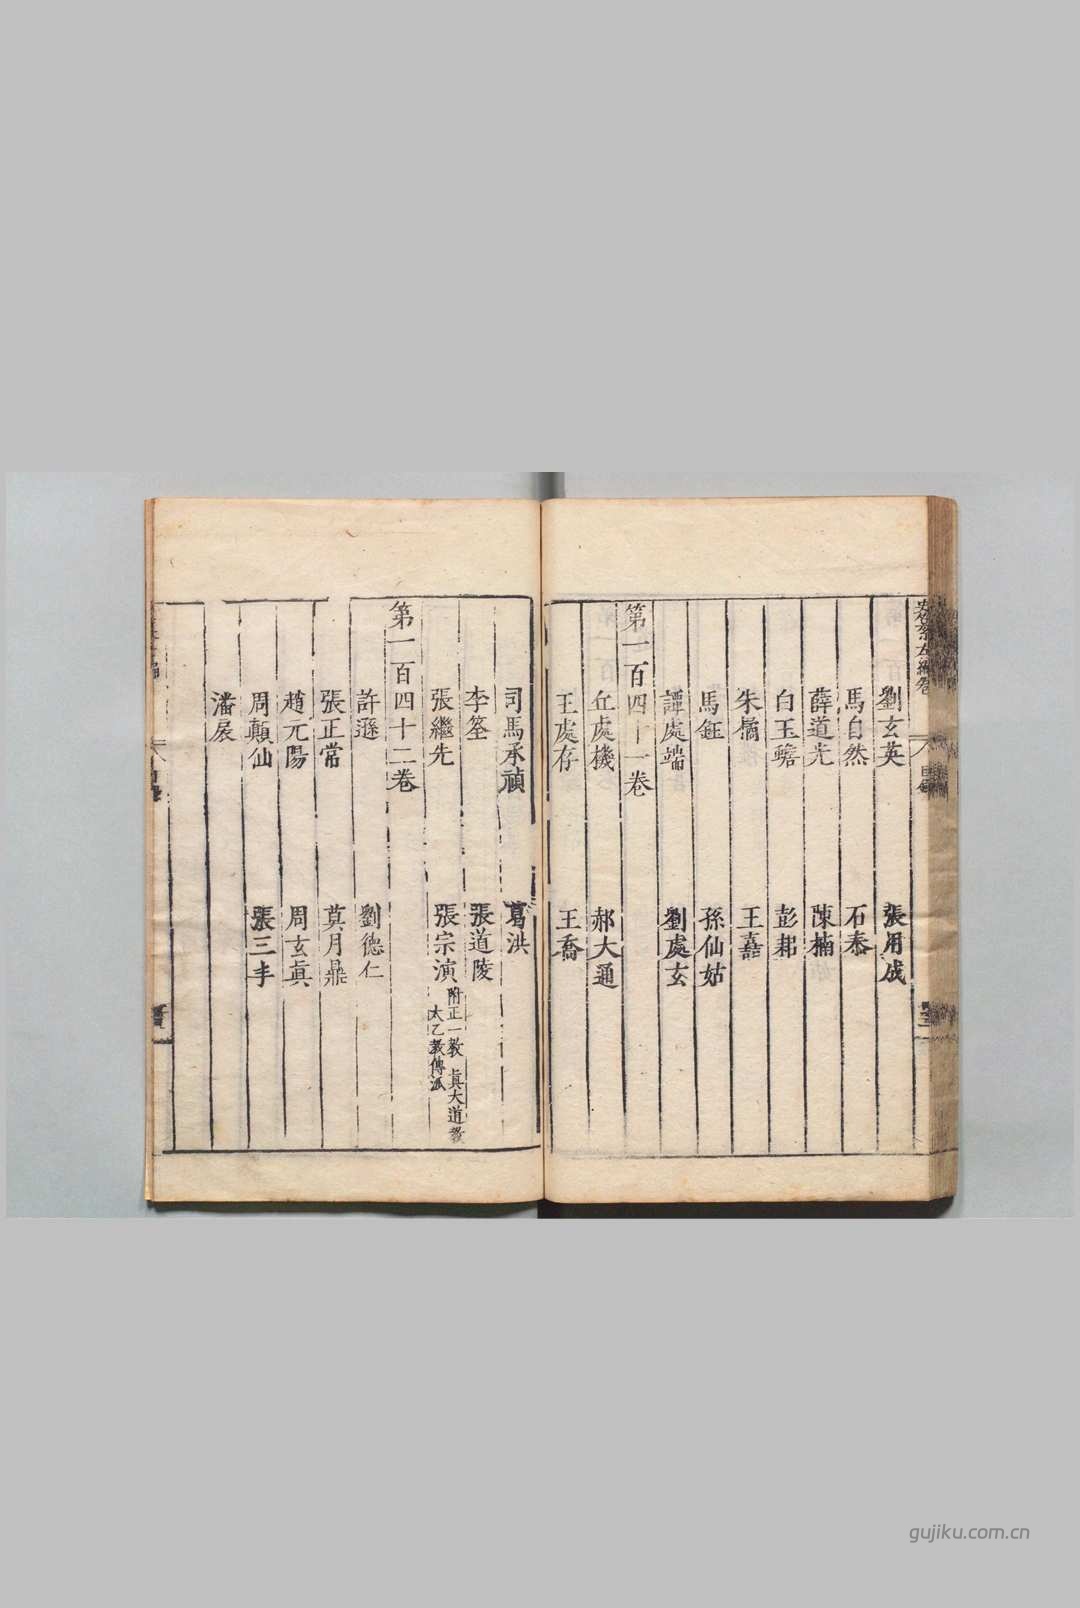 史左編卷
目錄
劉玄英 張用成
馬自然 石泰
薛道光 陳楠
白玉蟾 彭耜
朱橘 王嚞
馬鈺 孫仙姑
譚處端 劉處玄
第一百四十一卷
丘處機 郝大通
王處存 王喬
司馬承禎 葛洪
李筌 張道陵
張繼先 張宗演 附正一教 眞大道教
太乙教傳派
第一百四十二卷
許遜 劉德仁
張正常 莫月鼎
趙元陽 周玄眞
周顛仙 張三丰
潘扆
gujiku.com.cn